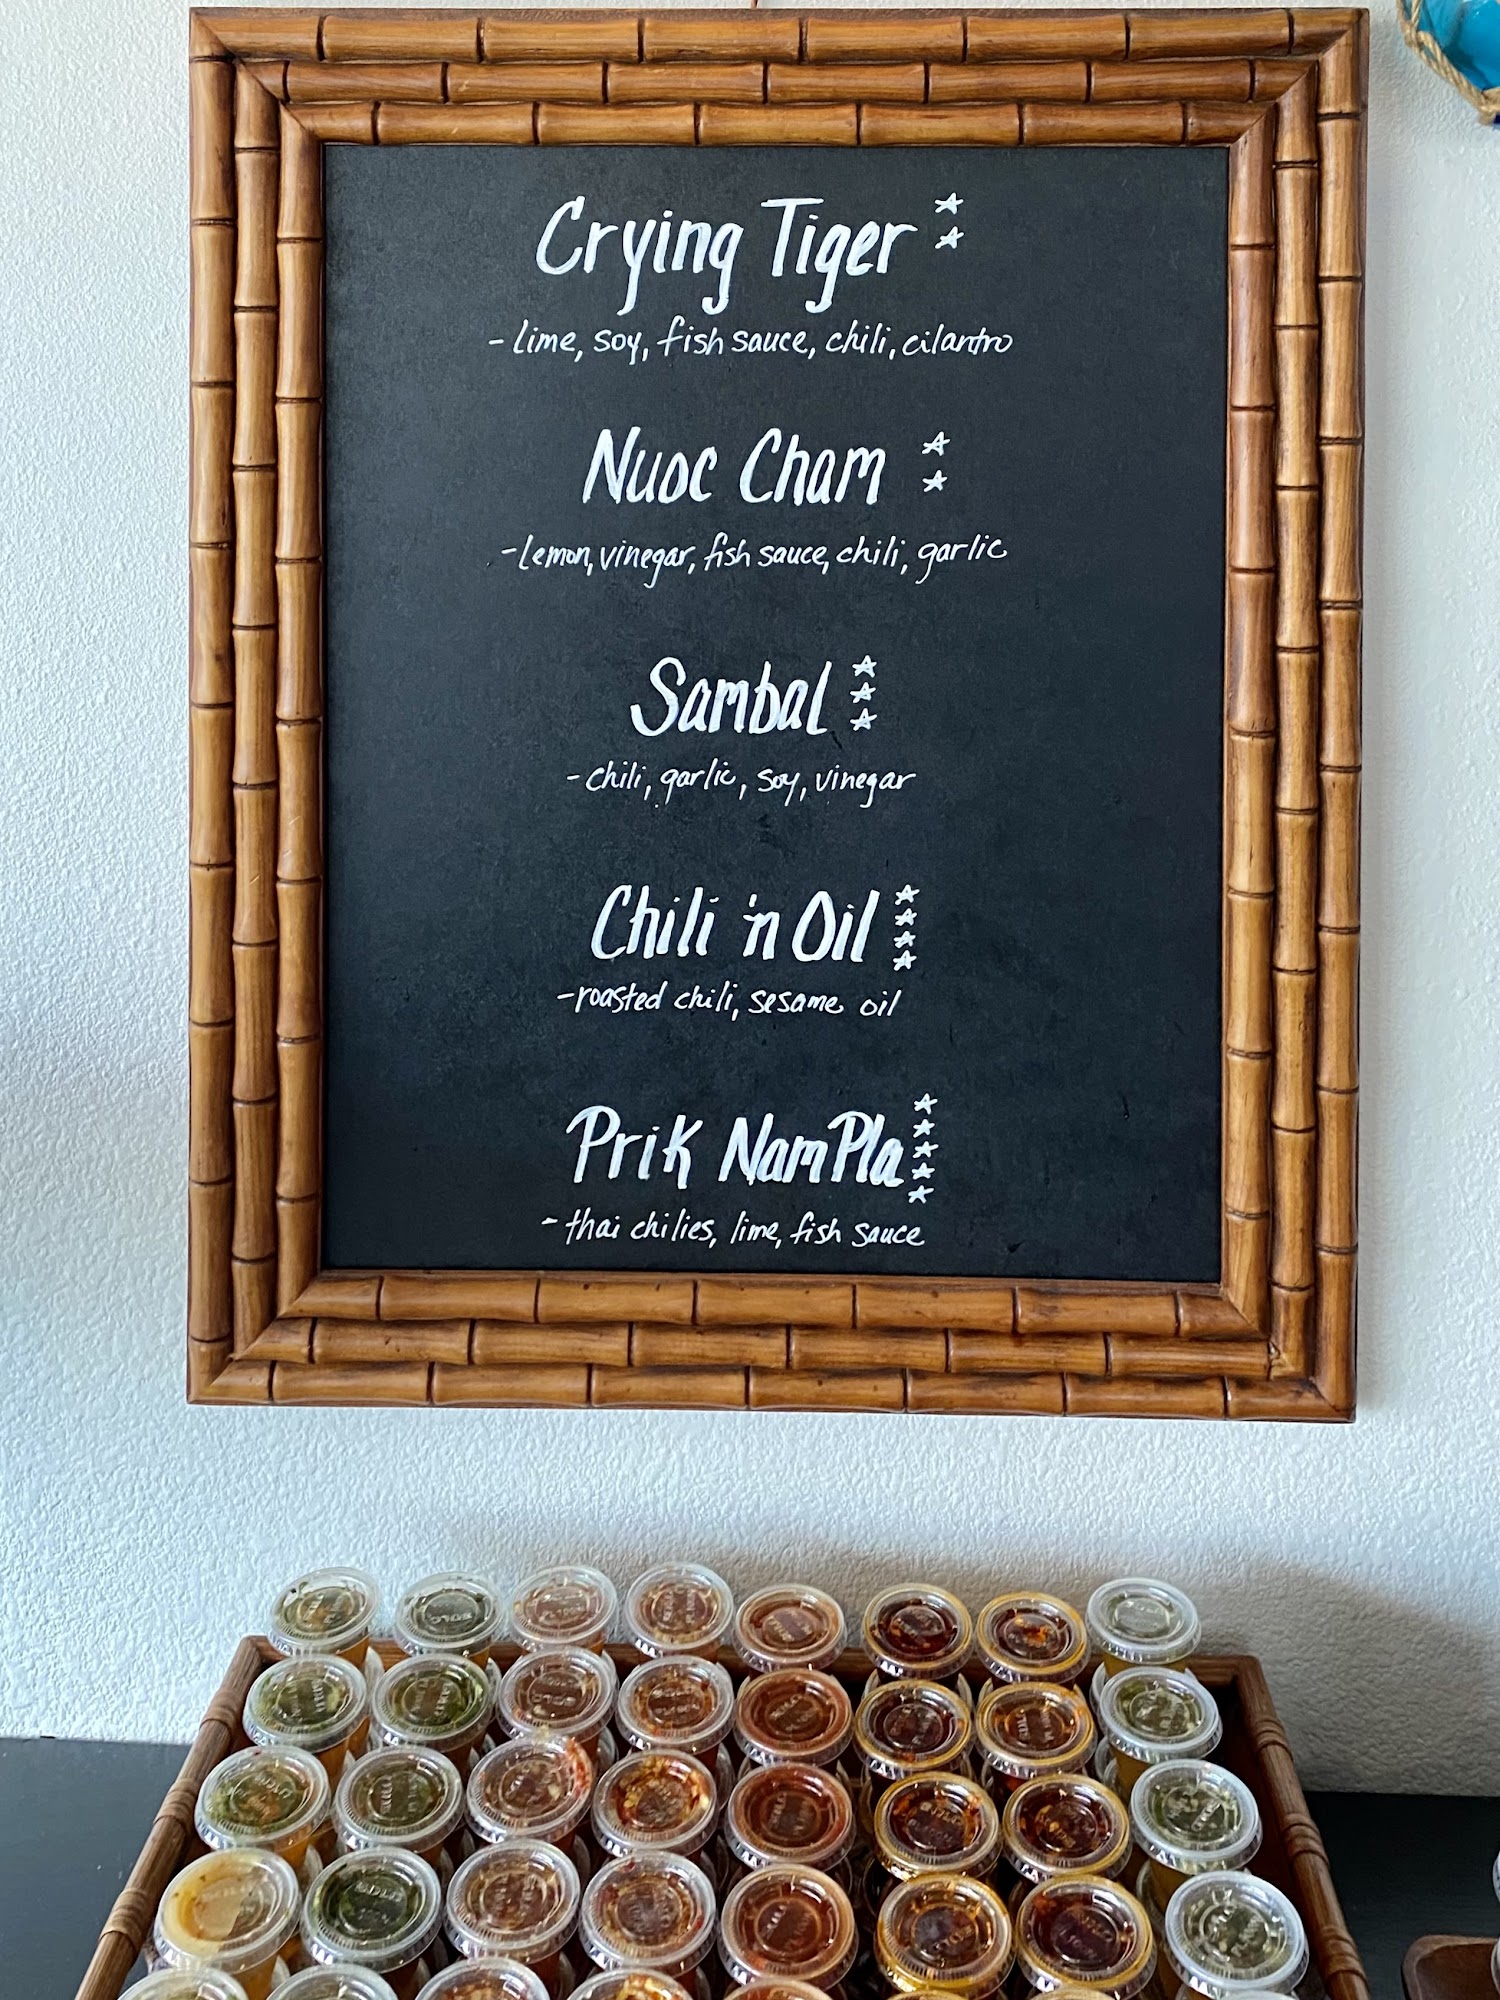 Crying Tiger ☆☆
- lime, soy, fish sauce, chili, cilantro
Nuoc Cham ☆☆
- lemon, vinegar, fish sauce, chili, garlic
Sambal ☆☆☆
- chili, garlic, soy, vinegar
Chili 'n Oil ☆☆☆☆
- roasted chili, sesame oil
Prik Nam Pla ☆☆☆☆☆
- thai chilies, lime, fish sauce